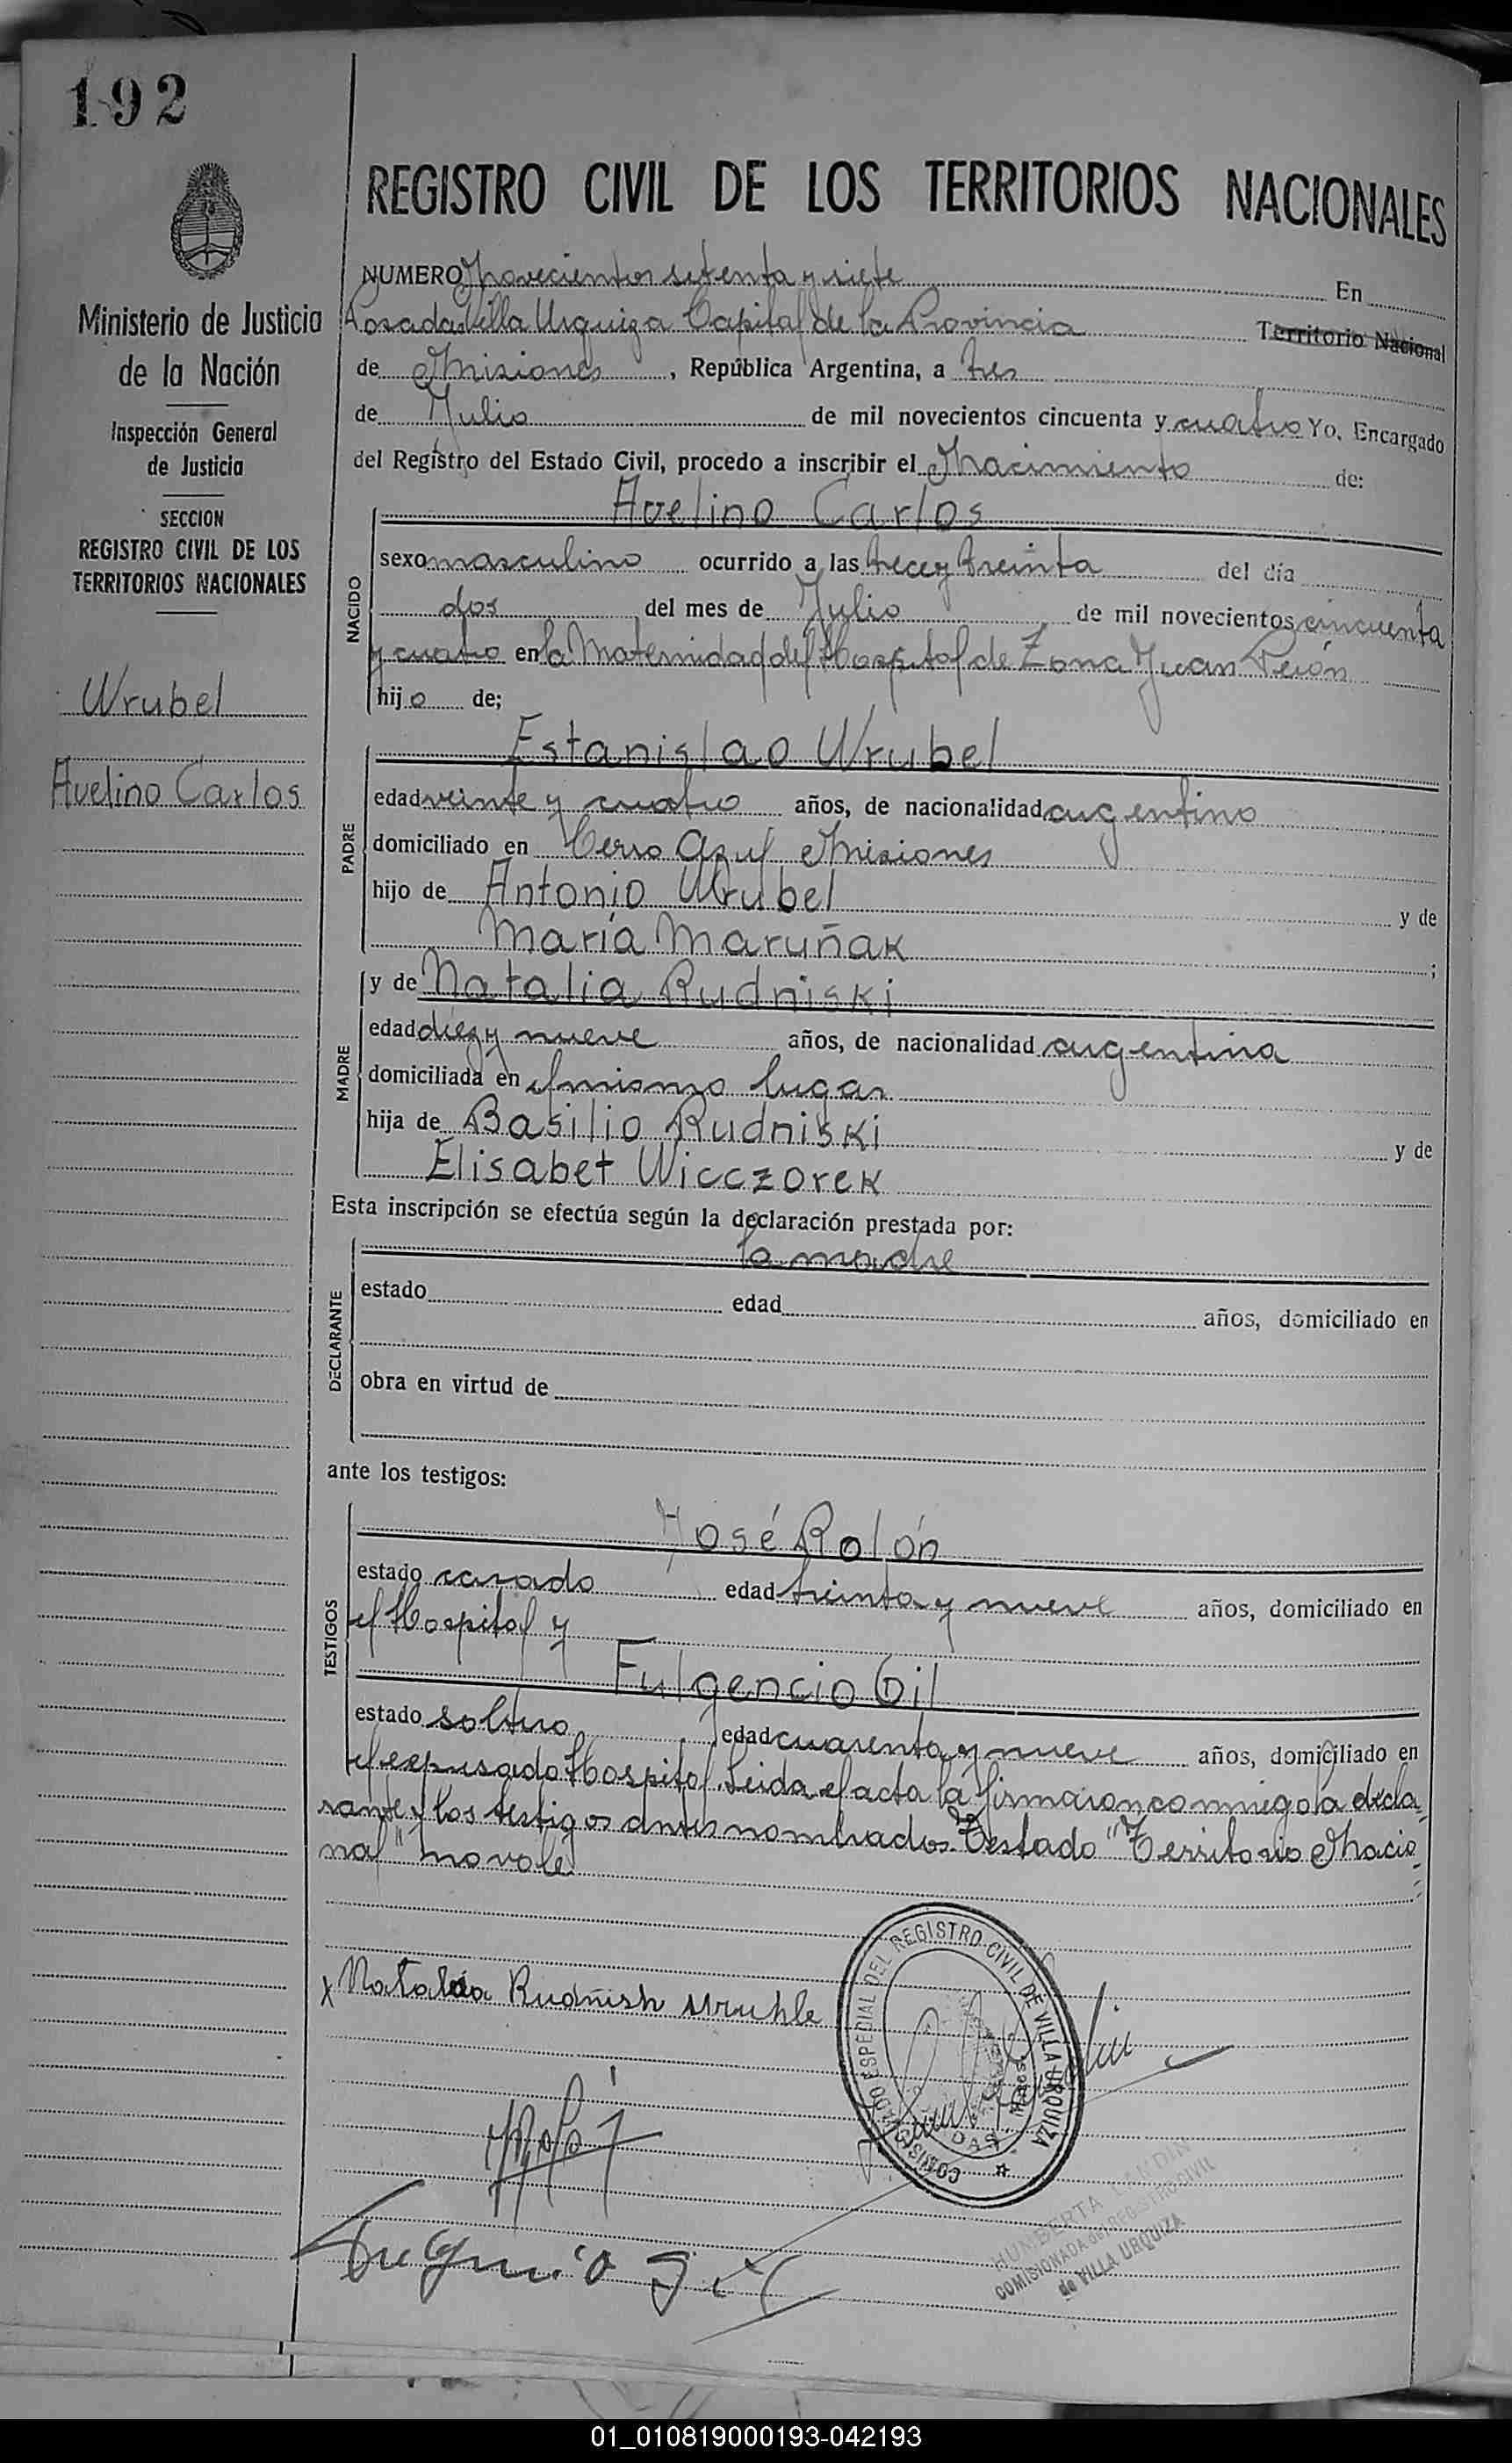 192
REGISTRO CIVIL DE LOS TERRITORIOS NACIONALES
Ministerio de Justicia
de la Nación
Inspección General
de Justicia
SECCION
REGISTRO CIVIL DE LOS
TERRITORIOS NACIONALES
Wrubel
Avelino Carlos
NUMERO Novecientos setenta y siete En
Posadas Villa Urquiza Capital de la Provincia Territorio Nacional
de Misiones, República Argentina, a tres
de Julio de mil novecientos cincuenta y cuatro Yo, Encargado
del Registro del Estado Civil, procedo a inscribir el Nacimiento de:
Avelino Carlos
NACIDO
sexo masculino ocurrido a las trece y treinta del día
dos del mes de Julio de mil novecientos cincuenta
y cuatro en la Maternidad del Hospital de Zona Juan Perón
hijo de;
Estanislao Wrubel
PADRE
edad veinte y cuatro años, de nacionalidad argentino
domiciliado en Cerro Azul Misiones
hijo de Antonio Wrubel y de
María Maruñak;
y de Natalia Rudniski
MADRE
edad diez y nueve años, de nacionalidad argentina
domiciliada en el mismo lugar
hija de Basilio Rudniski y de
Elisabet Wicczorek
Esta inscripción se efectúa según la declaración prestada por:
la madre
DECLARANTE
estado edad años, domiciliado en
obra en virtud de
ante los testigos:
José Rolón
TESTIGOS
estado casado edad treinta y nueve años, domiciliado en
el Hospital y
Fulgencio Gil
estado soltero edad cuarenta y nueve años, domiciliado en
el expresado Hospital. Leida el acta la firmaron conmigo la decla
rante y los testigos antes nombrados. Testado "Territorio Nacio
nal" no vale
x Natalia Rudnish Wruble
COMISIONADO ESPECIAL DEL REGISTRO CIVIL DE VILLA URQUIZA
Fulgencio Gil
HUMBERTA
COMISIONADA del REGISTRO CIVIL
de VILLA URQUIZA
01_010819000193-042193